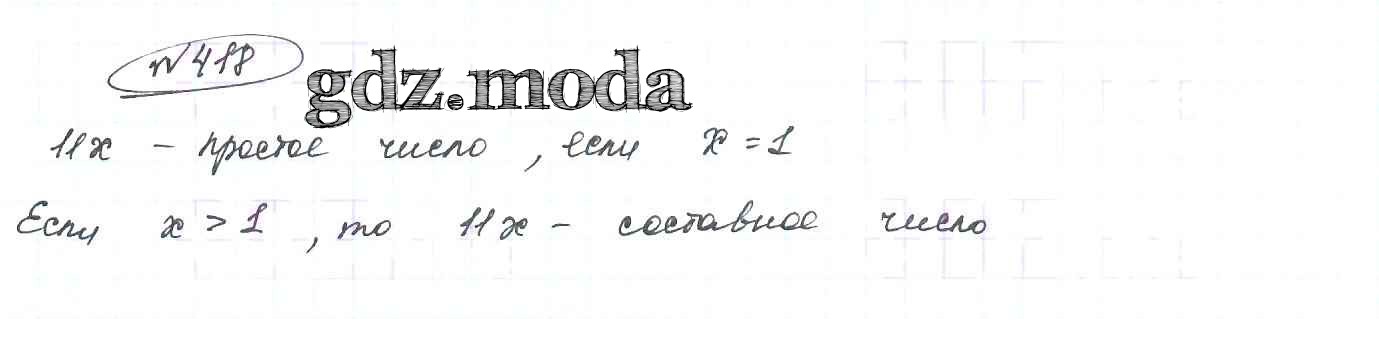 № 418
gdz.moda
11x - простое число, если x = 1
Если x > 1, то 11x - составное число